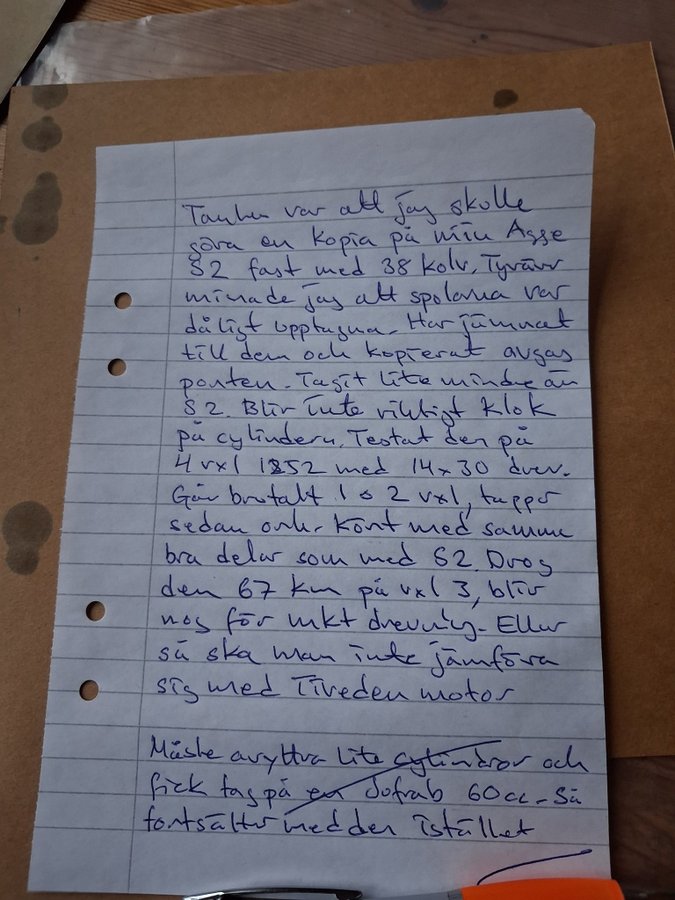 Tanken var att jag skulle
göra en kopia på min Agge
S2 fast med 38 kolv. Tyvärr
minade jag att spolarna var
dåligt upptagna. Har jämnat
till dem och kopierat avgas
porten. Tagit lite mindre än
S2. Blir inte riktigt klok
på cylindern. Testat den på
4 vxl 1352 med 14x30 drev.
Går brutalt 1 o 2 vxl, tappar
sedan ork. Kört med samma
bra delar som med S2. Drog
den 67 km på vxl 3, blir
nog för mkt drevning. Eller
så ska man inte jämföra
sig med Tiveden motor
Måste avyttra lite cylindrar och
fick tag på en Jofrab 60cc. Så
fortsätter med den istället